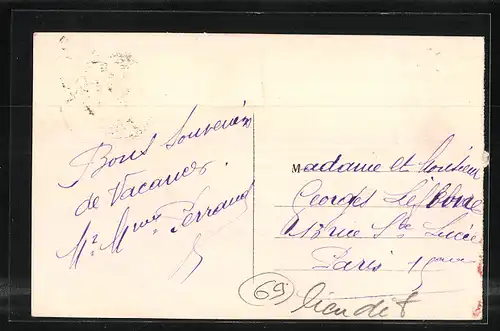 Bons Souvenirs
de Vacances.
Mr. Mme Perraud
Madame et Monsieur
Georges Lefebvre
rue Ste Lucie
Paris 15eme
69